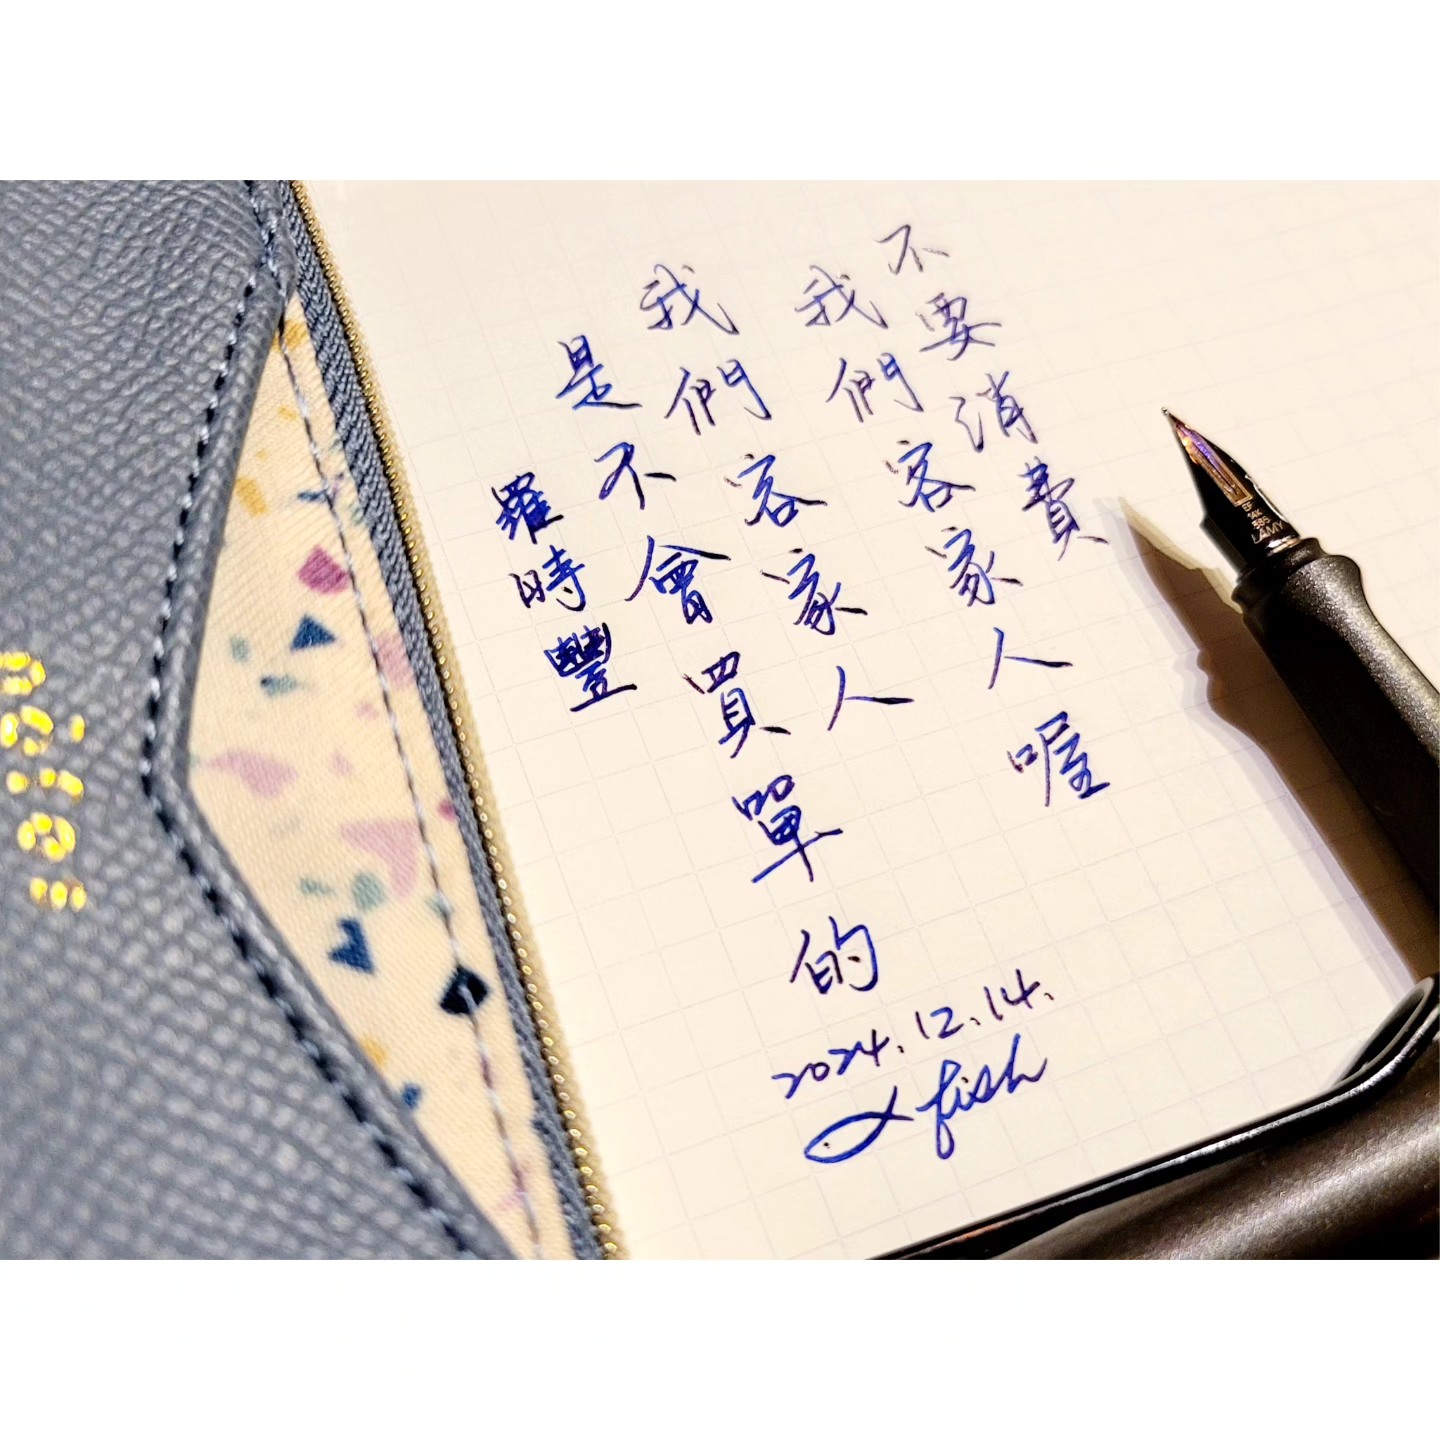 不要消費
我們客家人喔
我們客家人
是不會買單的
羅時豐
2024.12.14.
fish
EF
14K
585
LAMY